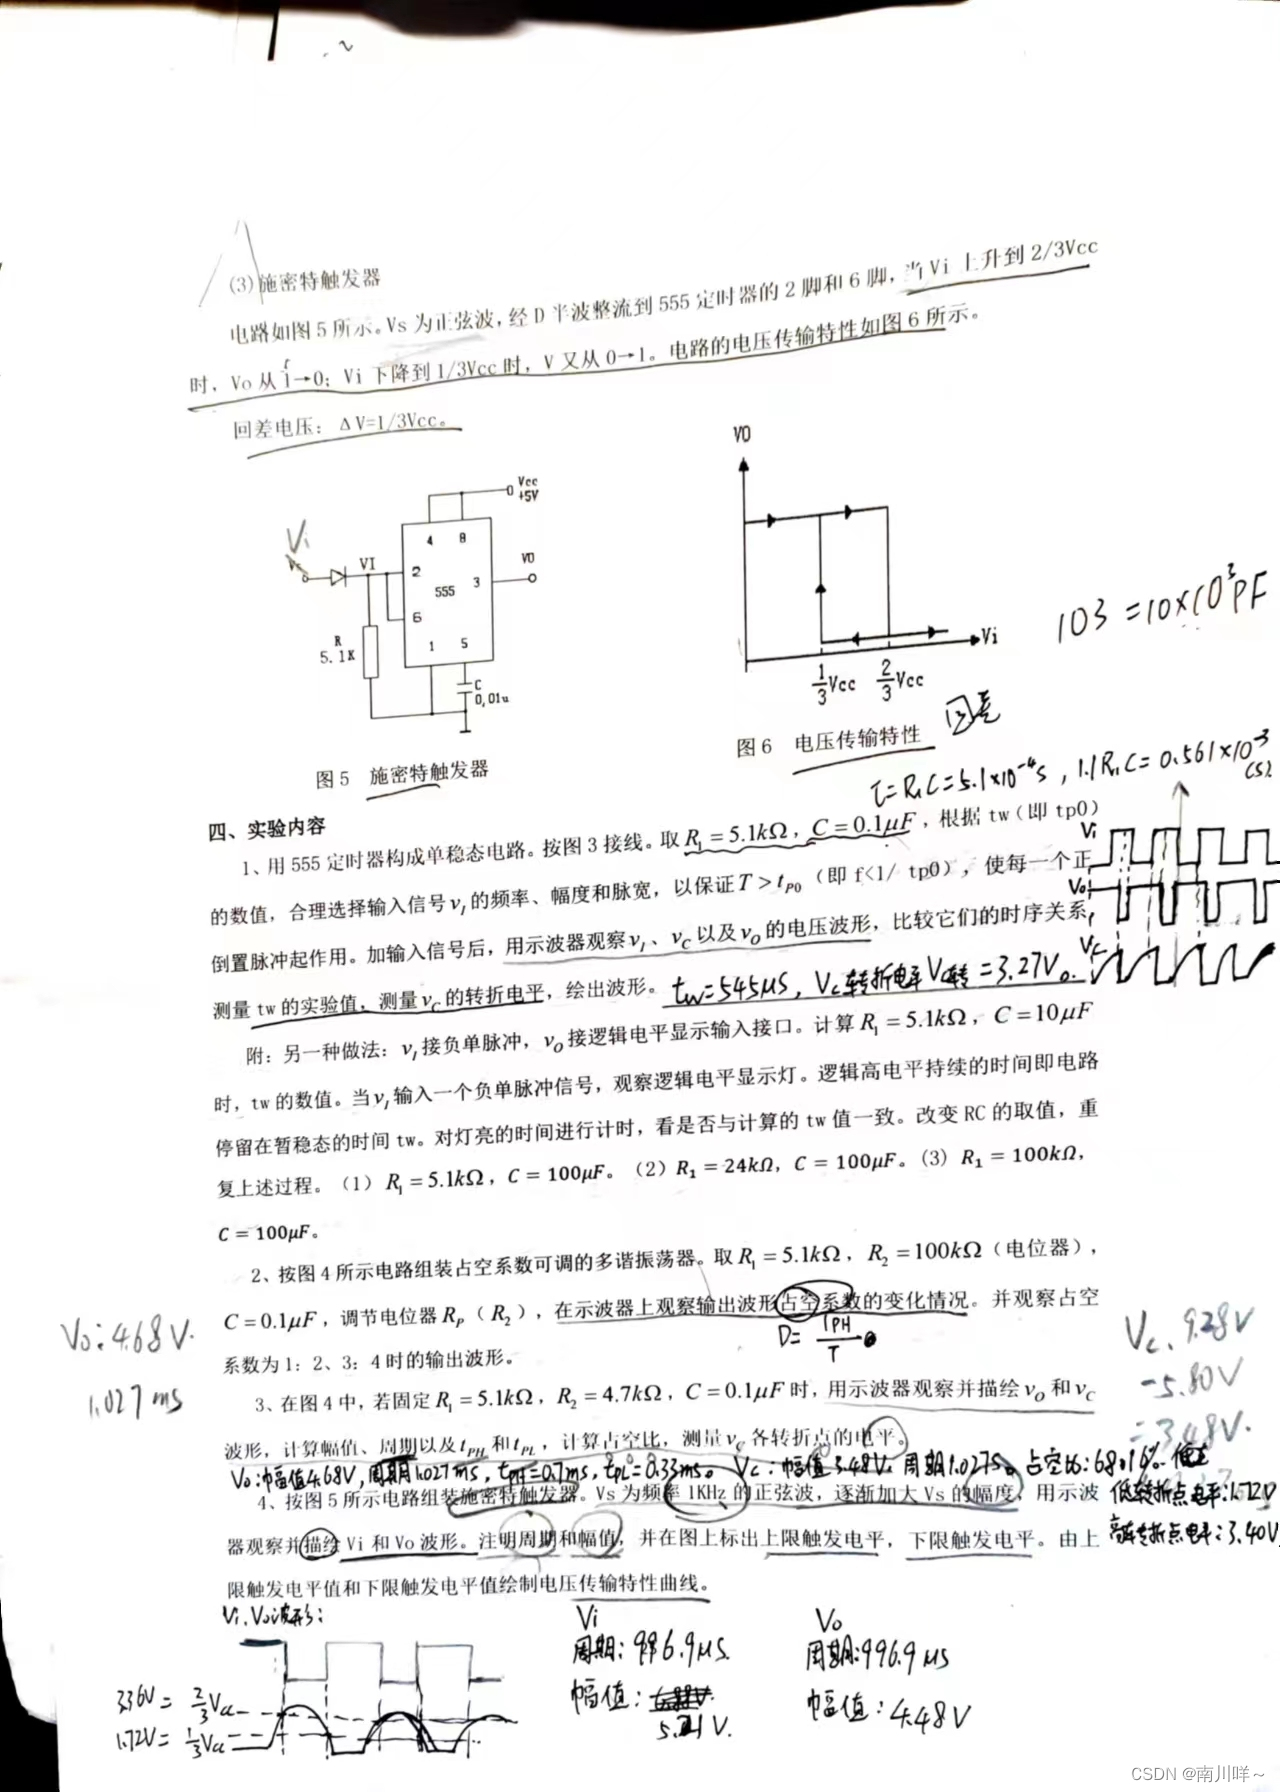 (3)施密特触发器
电路如图5所示。Vs为正弦波,经D半波整流到555定时器的2脚和6脚,当Vi上升到2/3Vcc
时,Vo从1→0;Vi下降到1/3Vcc时,V又从0→1。电路的电压传输特性如图6所示。
回差电压:ΔV=1/3Vcc。
Vcc
+5V
Vi
VI
4 8
2
555
3
VO
6
1 5
R
5.1K
C
0,01u
图5 施密特触发器
VO
Vi
1/3Vcc 2/3Vcc
图6 电压传输特性
回差
103=10×10³PF
τ=R₁C=5.1×10⁻⁴s,1.1R₁C=0.561×10⁻³(s)
四、实验内容
1、用555定时器构成单稳态电路。按图3接线。取R₁=5.1kΩ,C=0.1μF,根据tw(即tp0)
的数值,合理选择输入信号v_I的频率、幅度和脉宽,以保证T>t_P0(即f<1/ tp0),使每一个正
倒置脉冲起作用。加输入信号后,用示波器观察v_I、v_C以及v_O的电压波形,比较它们的时序关系,
测量tw的实验值,测量v_C的转折电平,绘出波形。
tw=545μs,Vc转折电平Vc转=3.27V。
Vi
Vo
Vc
附:另一种做法:v_I接负单脉冲,v_O接逻辑电平显示输入接口。计算R₁=5.1kΩ,C=10μF
时,tw的数值。当v_I输入一个负单脉冲信号,观察逻辑电平显示灯。逻辑高电平持续的时间即电路
停留在暂稳态的时间tw。对灯亮的时间进行计时,看是否与计算的tw值一致。改变RC的取值,重
复上述过程。(1)R₁=5.1kΩ,C=100μF。(2)R₁=24kΩ,C=100μF。(3)R₁=100kΩ,
C=100μF。
2、按图4所示电路组装占空系数可调的多谐振荡器。取R₁=5.1kΩ,R₂=100kΩ(电位器),
C=0.1μF,调节电位器R_P(R₂),在示波器上观察输出波形占空系数的变化情况。并观察占空
D=TPH/T
系数为1:2、3:4时的输出波形。
Vo:4.68V.
1.027ms
Vc.9.28V
-5.80V
=3.48V.
3、在图4中,若固定R₁=5.1kΩ,R₂=4.7kΩ,C=0.1μF时,用示波器观察并描绘v_O和v_C
波形,计算幅值、周期以及t_PH和t_PL,计算占空比,测量v_C各转折点的电平。
Vo:幅值4.68V,周期1.027ms,tPH=0.7ms,tPL=0.33ms。Vc:幅值3.48V.周期1.027s。占空比:68.16%.
低转折点电平:1.72V
高转折点电平:3.40V
4、按图5所示电路组装施密特触发器。Vs为频率1KHz的正弦波,逐渐加大Vs的幅度,用示波
器观察并描绘Vi和Vo波形。注明周期和幅值,并在图上标出上限触发电平,下限触发电平。由上
限触发电平值和下限触发电平值绘制电压传输特性曲线。
Vi、Vo波形:
3.36V=2/3Vcc
1.72V=1/3Vcc
Vi
周期:996.9μs.
幅值:
V.
Vo
周期:996.9μs
幅值:4.48V
CSDN @南川咩~